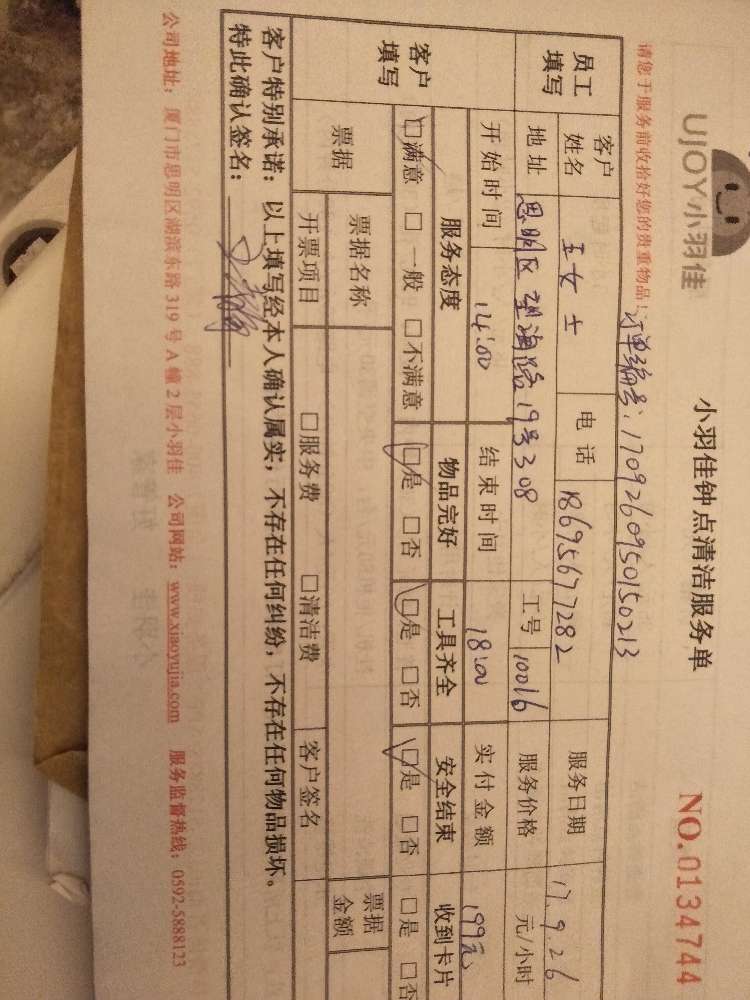 UJOY小羽佳
小羽佳钟点清洁服务单
NO.0134744
请您于服务前收拾好您的贵重物品！
订单编号：1709260950150213
员工填写 客户姓名 王女士 电话 18695677282 服务日期 17.9.26
地址 思明区望海路19号308 工号 10016 服务价格 元/小时
客户填写 开始时间 14:00 结束时间 18:00 实付金额 199元
服务态度 物品完好 工具齐全 安全结束 收到卡片
□满意 □一般 □不满意 □是 □否 □是 □否 □是 □否 □是 □否
票据 票据名称 票据金额
开票项目 □服务费 □清洁费 客户签名
客户特别承诺：以上填写经本人确认属实，不存在任何纠纷，不存在任何物品损坏。
特此确认签名：
公司地址：厦门市思明区湖滨东路319号A幢2层小羽佳 公司网站：www.xiaoyujia.com 服务监督热线：0592-5888123